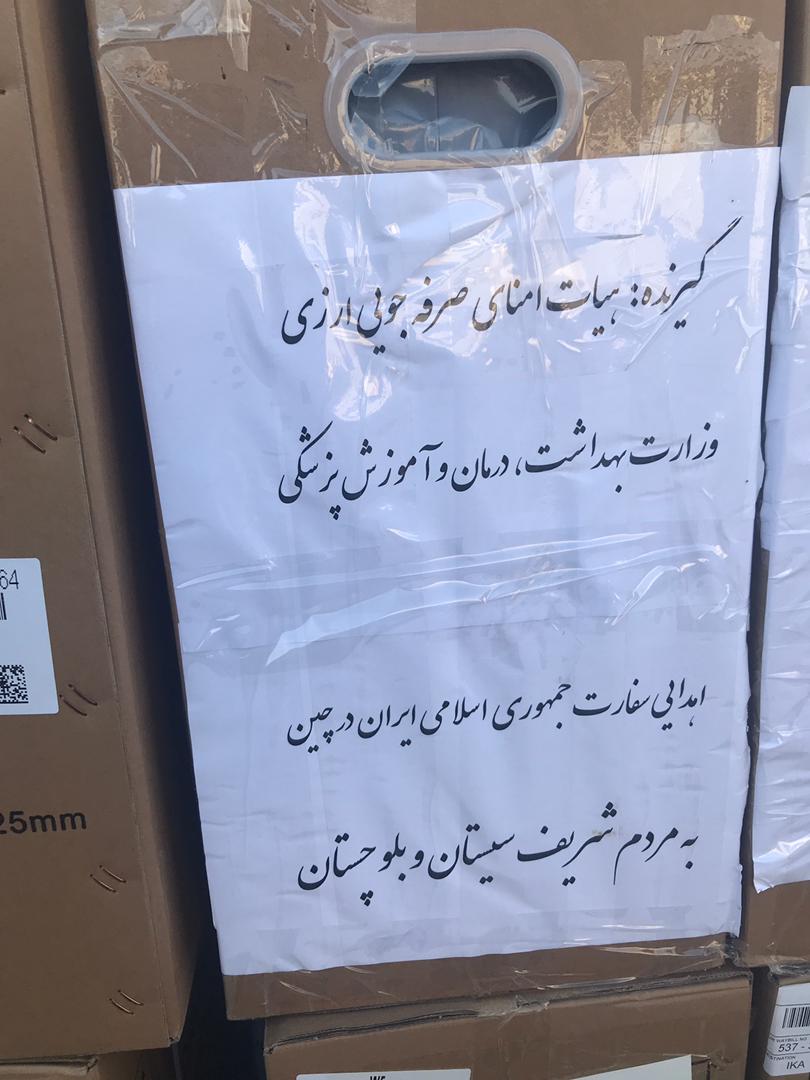 گیرنده: هیات امنای صرفه جویی ارزی
وزارت بهداشت، درمان و آموزش پزشکی
اهدایی سفارت جمهوری اسلامی ایران در چین
به مردم شریف سیستان و بلوچستان
64
25mm
WAYBILL NO
537 -
DESTINATION
IKA